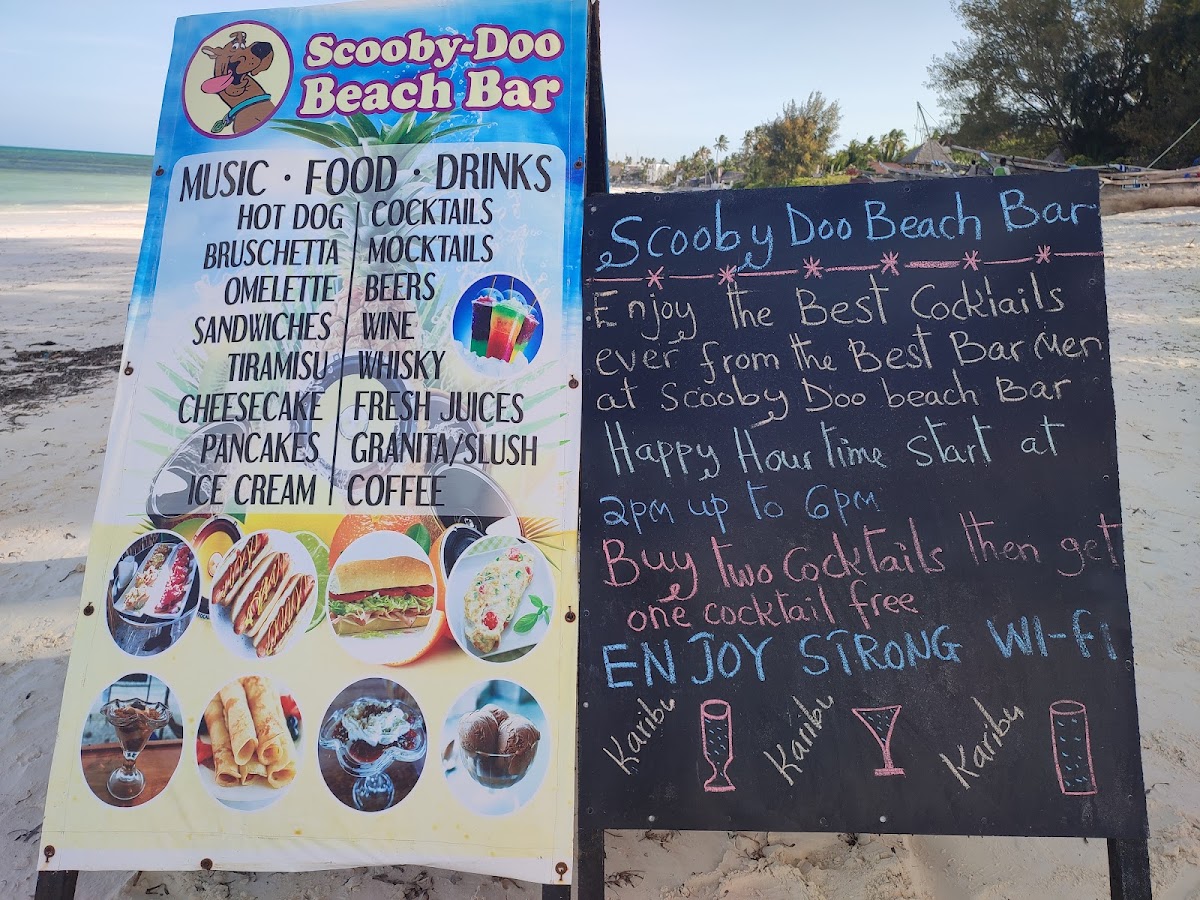 Scooby-Doo
Beach Bar
MUSIC · FOOD · DRINKS
HOT DOG
BRUSCHETTA
OMELETTE
SANDWICHES
TIRAMISU
CHEESECAKE
PANCAKES
ICE CREAM
COCKTAILS
MOCKTAILS
BEERS
WINE
WHISKY
FRESH JUICES
GRANITA/SLUSH
COFFEE
Scooby Doo Beach Bar
Enjoy the Best Cocktails
ever from the Best Bar Men
at Scooby Doo beach Bar
Happy Hour time start at
2pm up to 6pm
Buy two Cocktails then get
one cocktail free
ENJOY STRONG WI-Fi
Karibu Karibu Karibu